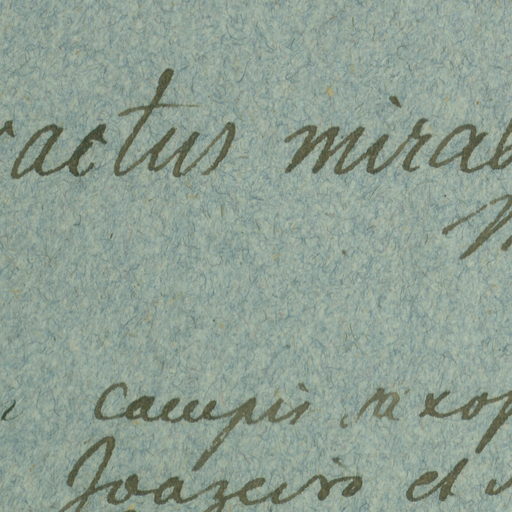 ractus mirab
campis saxop
Joazeiro et